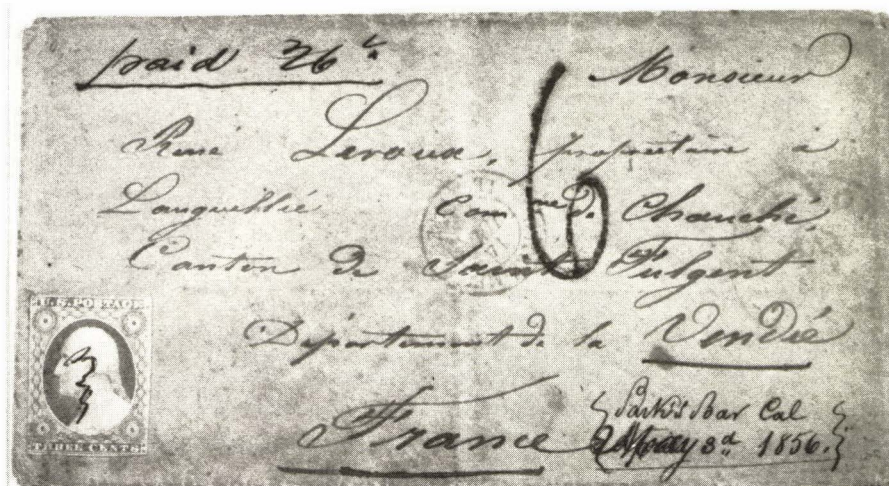 paid 26
Monsieur
6
René Leroux, propriétaire à
Comne de Chauché,
Canton de Saint Fulgent
Département de la Vendée
France
Park's Bar Cal
May 3d 1856.
U.S. POSTAGE
THREE CENTS